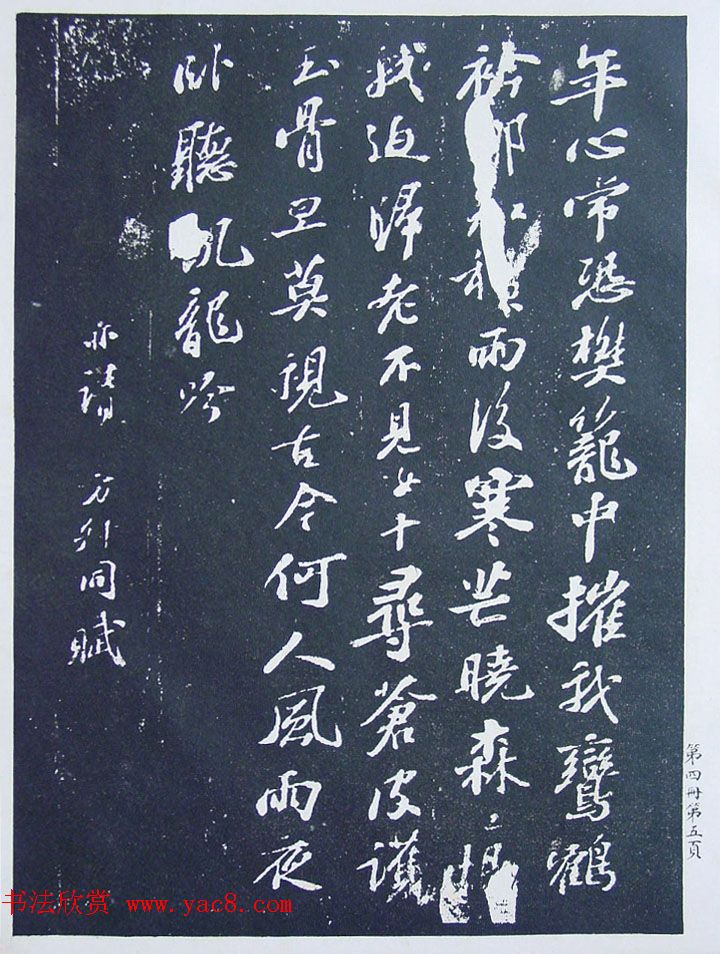 年心常恐樊籠中摧我鸞鶴
衿 雨後寒芒曉森〻
我迫歸老不見女十尋蒼皮護
玉骨旦莫視古今何人風雨夜
卧聽 龍吟
亦請 方外同賦
第四冊第五頁
书法欣赏 www.yac8.com